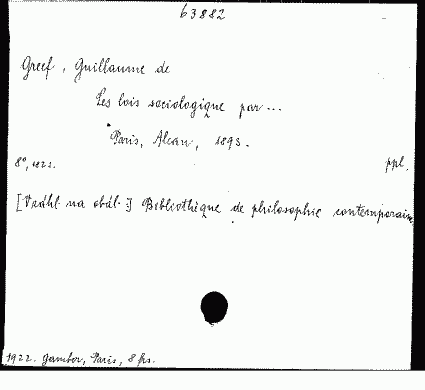 63882
Greef, Guillaume de
Les lois sociologique par...
Paris, Alcan, 1893.
8°, 182 s. ppl.
[Vráhl. na obál.:] Bibliothèque de philosophie contemporaine
1922. Gamber, Paris, 8 frs.